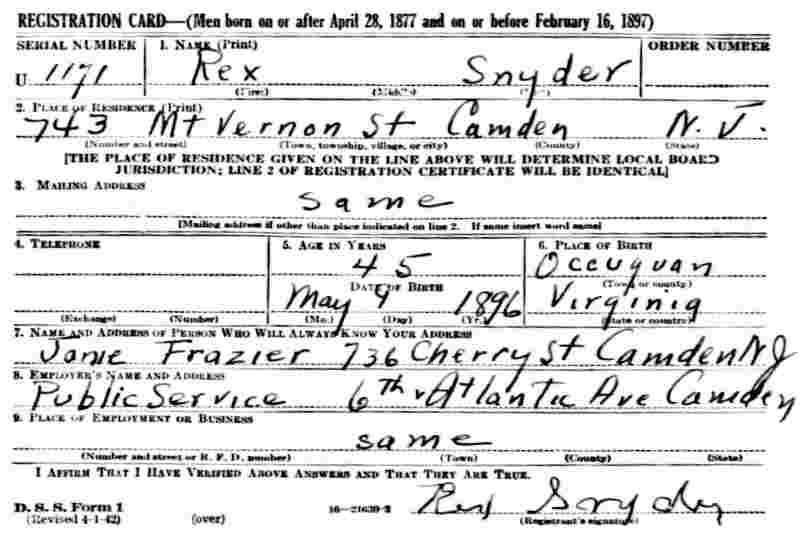 REGISTRATION CARD—(Men born on or after April 28, 1877 and on or before February 16, 1897)
SERIAL NUMBER 1. NAME (Print) ORDER NUMBER
U 1171 Rex Snyder
(First) (Middle) (Last)
2. PLACE OF RESIDENCE (Print)
743 Mt Vernon St Camden N. J.
(Number and street) (Town, township, village, or city) (County) (State)
[THE PLACE OF RESIDENCE GIVEN ON THE LINE ABOVE WILL DETERMINE LOCAL BOARD
JURISDICTION; LINE 2 OF REGISTRATION CERTIFICATE WILL BE IDENTICAL]
3. MAILING ADDRESS
same
[Mailing address if other than place indicated on line 2. If same insert word same]
4. TELEPHONE 5. AGE IN YEARS 6. PLACE OF BIRTH
45 Occuquan
DATE OF BIRTH (Town or county)
May 9 1896 Virginia
(Exchange) (Number) (Mo.) (Day) (Yr.) (State or country)
7. NAME AND ADDRESS OF PERSON WHO WILL ALWAYS KNOW YOUR ADDRESS
Janie Frazier 736 Cherry St Camden NJ
8. EMPLOYER'S NAME AND ADDRESS
Public Service 6th & Atlantic Ave Camden
9. PLACE OF EMPLOYMENT OR BUSINESS
same
(Number and street or R. F. D. number) (Town) (County) (State)
I AFFIRM THAT I HAVE VERIFIED ABOVE ANSWERS AND THAT THEY ARE TRUE.
D. S. S. Form 1
(Revised 4-1-42) (over) 16—21630-2 Rex Snyder
(Registrant's signature)